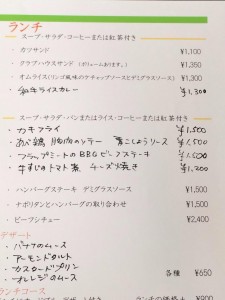 ランチ
スープ・サラダ・コーヒーまたは紅茶付き
・ カツサンド ¥1,100
・ クラブハウスサンド (ボリュームあります。) ¥1,350
・ オムライス(リンゴ風味のケチャップソースとデミグラスソース) ¥1,300
・ 和牛ライスカレー ¥1,300
スープ・サラダ・パンまたはライス・コーヒーまたは紅茶付き
・ カキフライ ¥1,500
・ ソテー ソース ¥1,500
・ フラップミートのBBQビーフステーキ ¥1,500
・ 牛すじのトマト煮 チーズ焼き ¥1,200
・ ハンバーグステーキ デミグラスソース ¥1,500
・ ナポリタンとハンバーグの取り合わせ ¥1,500
・ ビーフシチュー ¥2,400
デザート
・ バナナのムース
・ アーモンドタルト
・ カスタードプリン 各種 ¥650
・ オレンジのムース
ランチコース
¥900